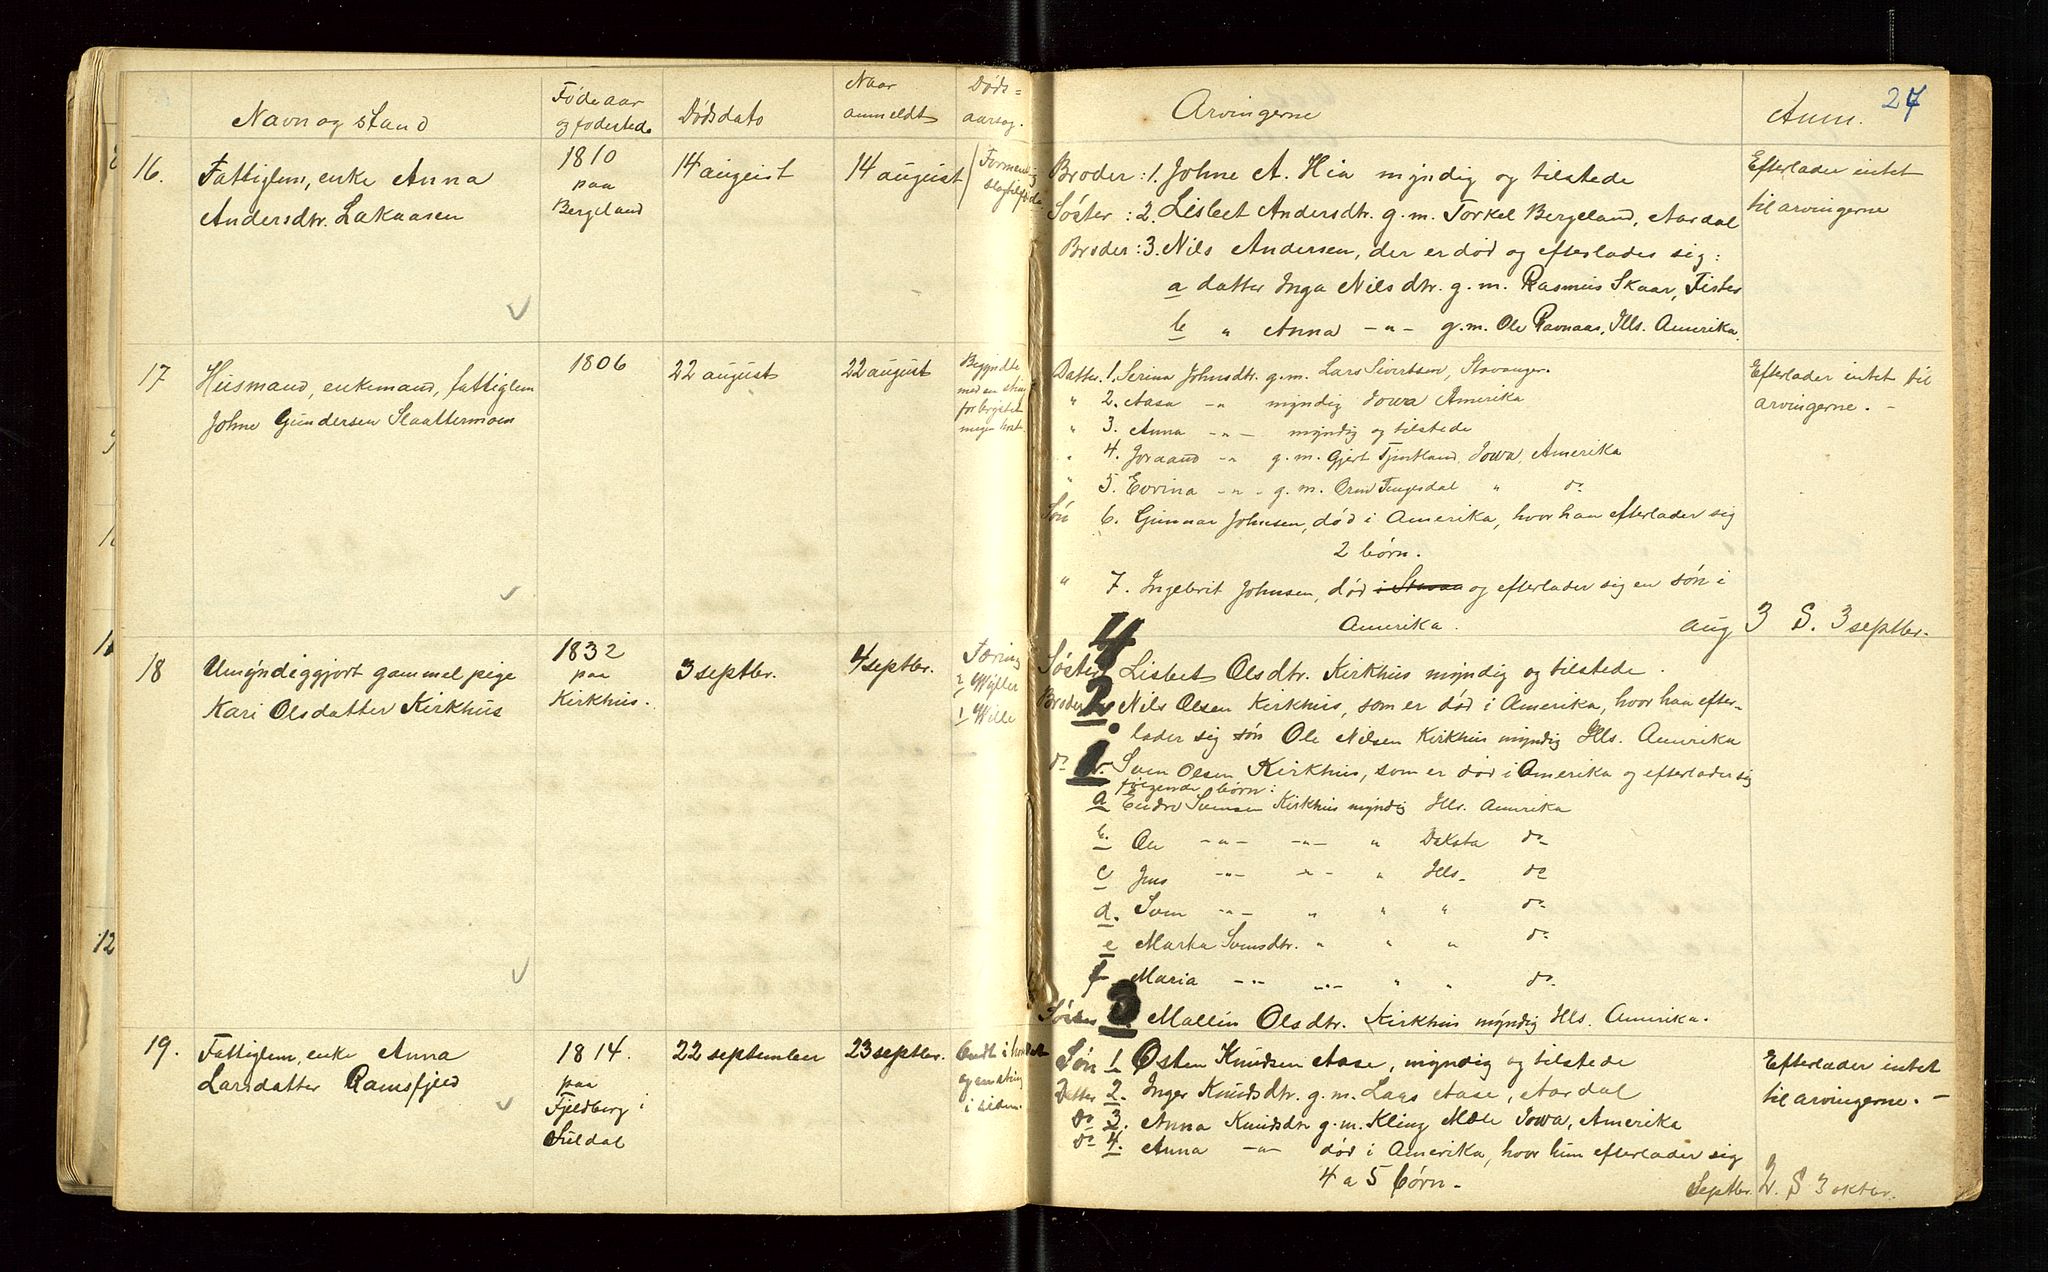 27
Navn og stand
Fødeaar
og fødested
Dødsdato
Naar
anmeldt
Døds-
aarsag.
Arvingerne
Anm.
16.
Fattiglem, enke Anna
Andersdtr. Lakaasen
1810
paa
Bergeland
14 august
14 august
Formentlig
slagtilfælde
Broder : 1. Johne A. Hia myndig og tilstede
Søster : 2. Lisbet Andersdtr. g.m. Torkel Bergeland, Aardal
Broder : 3. Nils Andersen, der er død og efterlades sig:
a datter Inga Nilsdtr. g.m. Rasmus Skaar, Fister
b " Anna -"- g.m. Ole Ravnaas, Ills. Amerika.
Efterlader intet
til arvingerne
17
Husmand, enkemand, fattiglem
Johne Gundersen Slaattermoen
1806
22 august
22 august
Begyndte
med en
for brystet
megen
Datter. 1. Serina Johnsdtr. g.m. Lars Sivertsen, Stavanger.
" 2. Aasa -"- myndig Iowa Amerika
" 3. Anna -"- myndig og tilstede
" 4. Joraand -"- g.m. Gjert Tjentland, Iowa, Amerika
" 5. Evrina -"- g.m. Orm Tengesdal " do
Søn 6. Gunnar Johnsen, død i Amerika, hvor han efterlader sig
2 børn.
" 7. Ingebrit Johnsen, død og efterlader sig en søn i
Amerika.
Efterlader intet til
arvingerne. -
aug 3 S. 3 septbr.
18
Umyndiggjort gammel pige
Kari Olsdatter Kirkhus
1832
paa
Kirkhus.
3 septbr.
4 septbr.
Tæring
2 Wyller
1 Wille
Søster 4 Lisbet Olsdtr. Kirkhus myndig og tilstede.
Broder 2. Nils Olsen Kirkhus, som er død i Amerika, hvor han efter-
lader sig søn Ole Nilsen Kirkhus myndig Ills. Amerika
do 1. Sven Olsen Kirkhus, som er død i Amerika og efterlader sig
følgende børn:
a Endre Svensen Kirkhus myndig Ills. Amerika
b. Ole -"- -"- " Dakota do
c Jens -"- -"- " Ills. do
d. Sven -"- " " " do
e Marta Svensdtr. " " " do
f Maria -"- -"- " " do
Søster 3 Mallin Olsdtr. Kirkhus myndig Ills. Amerika.
19.
Fattiglem, enke Anna
Larsdatter Ramsfjeld
1814.
paa
Fjeldberg i
Suldal
22 september
23 septbr.
Ondt i hovedet
og en sting
i siden.
Søn 1 Østen Knudsen Aase, myndig og tilstede
Datter 2. Inger Knudsdtr. g.m. Lars Aase, Aardal
do 3. Anna Knudsdtr g.m. Kling Mæle Iowa, Amerika
do 4. Anna -"- død i Amerika, hvor hun efterlader sig
4 a 5 børn.
Efterlader intet
til arvingerne. -
Septbr. 2. S 3 oktbr.